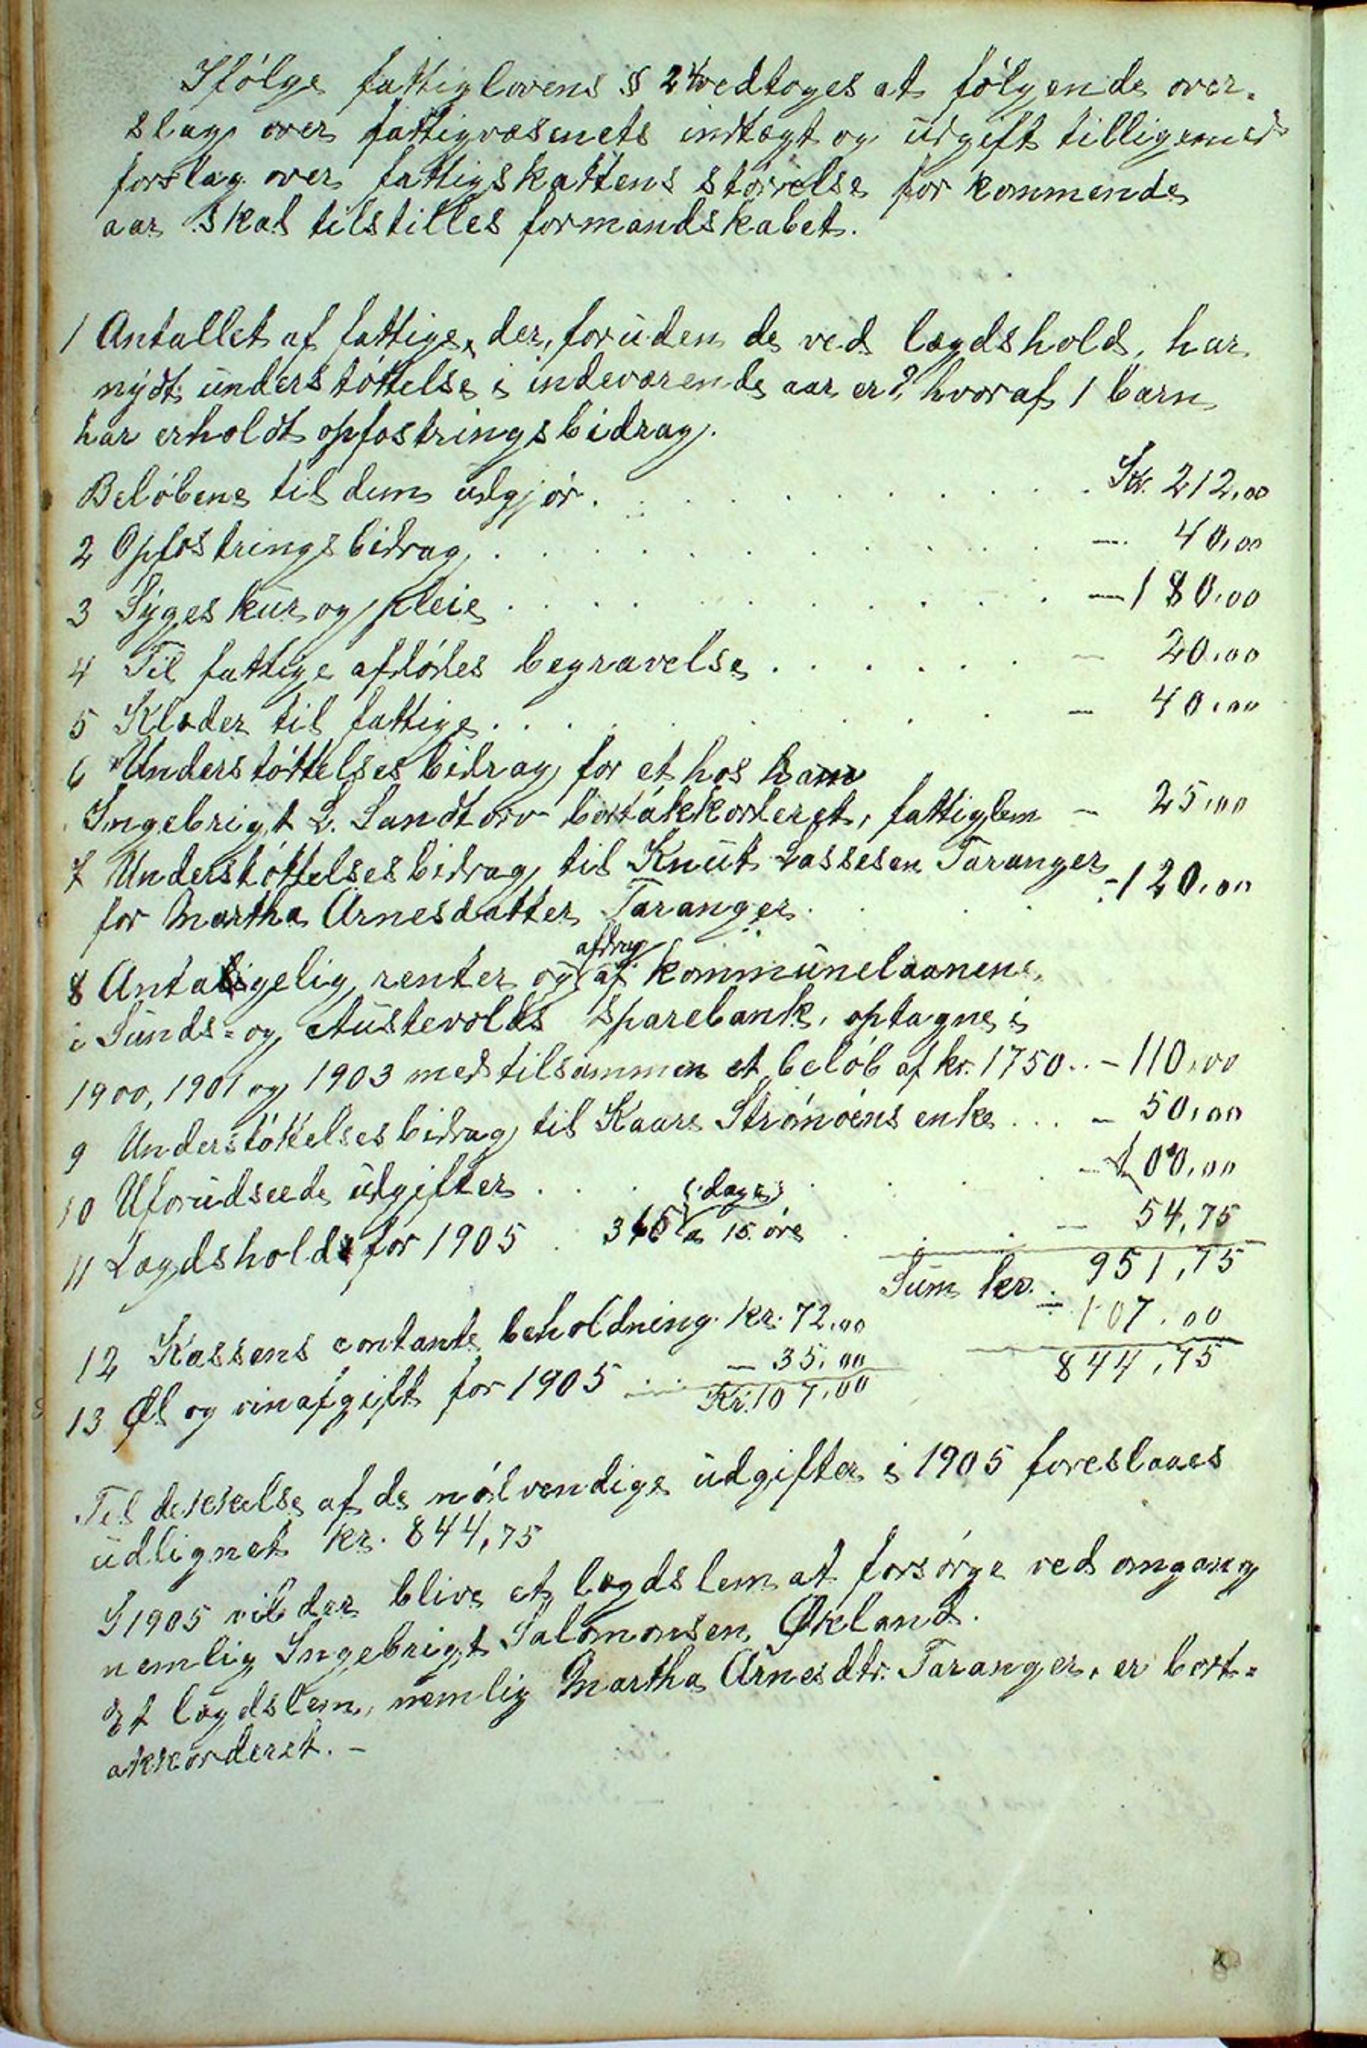 Ifølge fattiglovens § 24 vedtoges at følgende over-
slag over fattigvæsenets indtægt og udgift tilligemed
forslag over fattigskattens størrelse for kommende
aar skal tilstilles formandskabet.
1 Antallet af fattige, der, foruden de ved lægdshold, har
nydt understøttelse i indeværende aar er 9, hvoraf 1 barn
har erholdt opfostringsbidrag.
Beløbene til dem udgjør . . . . Kr. 212,00
2 Opfostringsbidrag . . . . — 40,00
3 Sygeskur og pleie . . . . — 180,00
4 Til fattige afdødes begravelse . . . . — 20,00
5 Klæder til fattige . . . . — 40,00
6 Understøttelsesbidrag for et hos ham
Ingebrigt L. Sandtorv bortakkorderet, fattiglem — 25,00
7 Understøttelsesbidrag til Knut Lassesen Taranger
for Martha Arnesdatter Taranger . . . . — 120,00
8 Antagelig renter og afdrag af kommunelaanene
i Sunds- og Austevolds sparebank, optagne i
1900, 1901 og 1903 med tilsammen et beløb af kr. 1750 . . — 110,00
9 Understøttelsesbidrag til Kaars Strømøens enke . . . — 50,00
10 Uforudseede udgifter . . . . — 100,00
11 Lægdshold for 1905 . 365 (dage) a 15 øre . . . — 54,75
Sum kr. 951,75
12 Kassens contante beholdning kr. 72,00 — 107,00
13 Øl og vinafgift for 1905 . . . — 35,00 844,75
Kr. 107,00
Til dekkelse af de nødvendige udgifter i 1905 foreslaaes
udlignet kr. 844,75
I 1905 vil der blive et lægdslem at forsørge ved omgang
nemlig Ingebrigt Salomonsen Økland.
Et lægdslem, nemlig Martha Arnesdtr. Taranger, er bort-
akkorderet. —